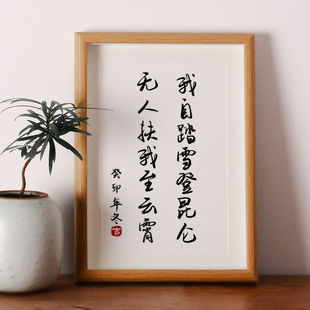 我自踏雪登昆仑
无人扶我至云霄
癸卯年冬